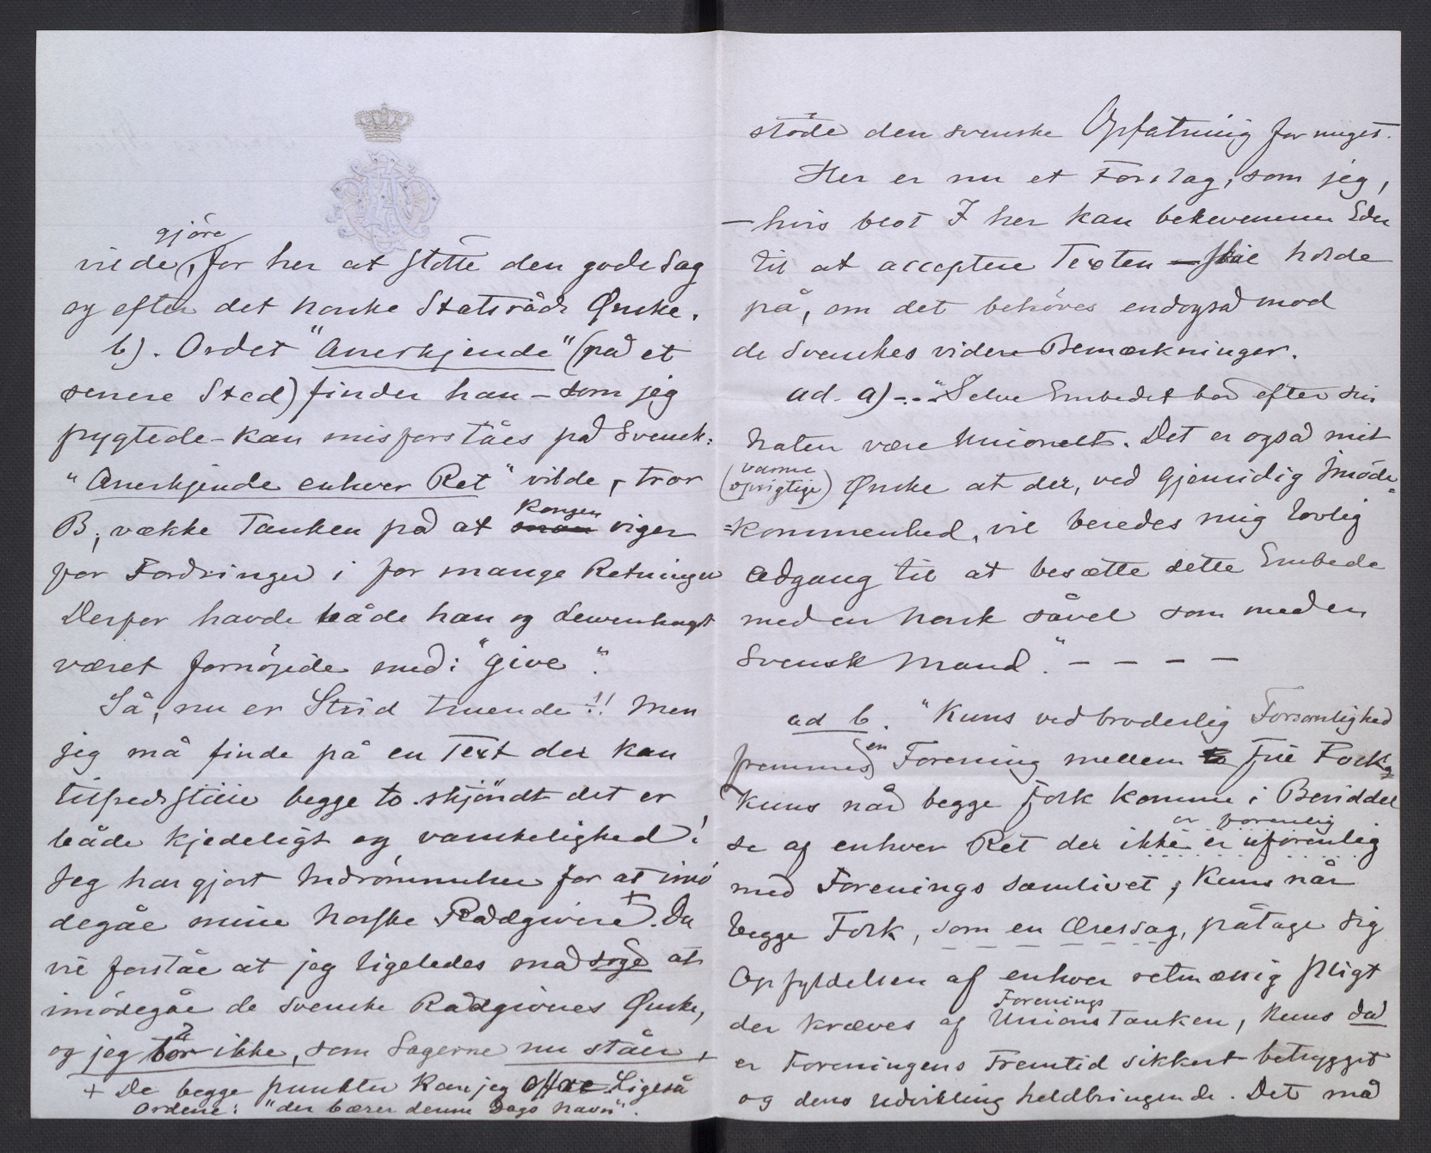 gjöre
vilde, for her at stötte den gode Sag
og efter det norske Statsråds Ønske.
b). Ordet "Anerkjende" (på et
senere Sted) finder han – som jeg
frygtede – kan misforståes på Svensk:
"Anerkjende enhver Ret" vilde, tror
B, vække Tanken på at Kongen viger
for Fordringer i for mange Retninger
Derfor havde både han og Lewenhaupt
været fornöiede med: "give".
Så, nu er Strid truende!! Men
jeg må finde på en Text der kan
tilfredsstille begge to. skjöndt det er
både kjedeligt og vanskelighed!
Jeg har gjort Indrömmelser for at imö
degåe mine norske Rådgivere +. Du
vil forståe at jeg ligeledes må söge at
imödegåe de svenske Rådgivres Ønske,
og jeg tör ikke, som Sagerne nu ståer
+ De begge punkter kan jeg offre Ligeså
Ordene: "der bærer denne Dags Navn".
støde den svenske Opfatning for meget.
Her er nu et Forslag, som jeg,
– hvis blot I her kan bekvemme Eder
til at acceptere Texten – skal holde
på, om det behöves endogså mod
de Svenskes videre Bemærkninger.
ad. a) – .. "Selve Embedet bör efter sin
Natur være Unionelt. Det er også mit
(varme
oprigtige) Ønske at der, ved gjensidig Imöde=
=kommenhed, vil beredes mig lovlig
Adgang til at besætte dette Embede
med en norsk såvel som med en
Svensk Mand." – – – –
ad b. "Kuns ved broderlig Forsonlighed
fremmes en Forening mellem to frie Folk,
Kuns når begge Folk komme i Besiddel
se af enhver Ret der ikke er uforenlig
er forenlig
med Forenings Samlivet, Kuns når
begge Folk, som en Æressag, påtage sig
Opfyldelsen af enhver retmæssig Pligt
der kræves af Unions tanken, Kuns da
Forenings
er Foreningens Fremtid sikkert betrygget
og dens Udvikling heldbringende. Det må